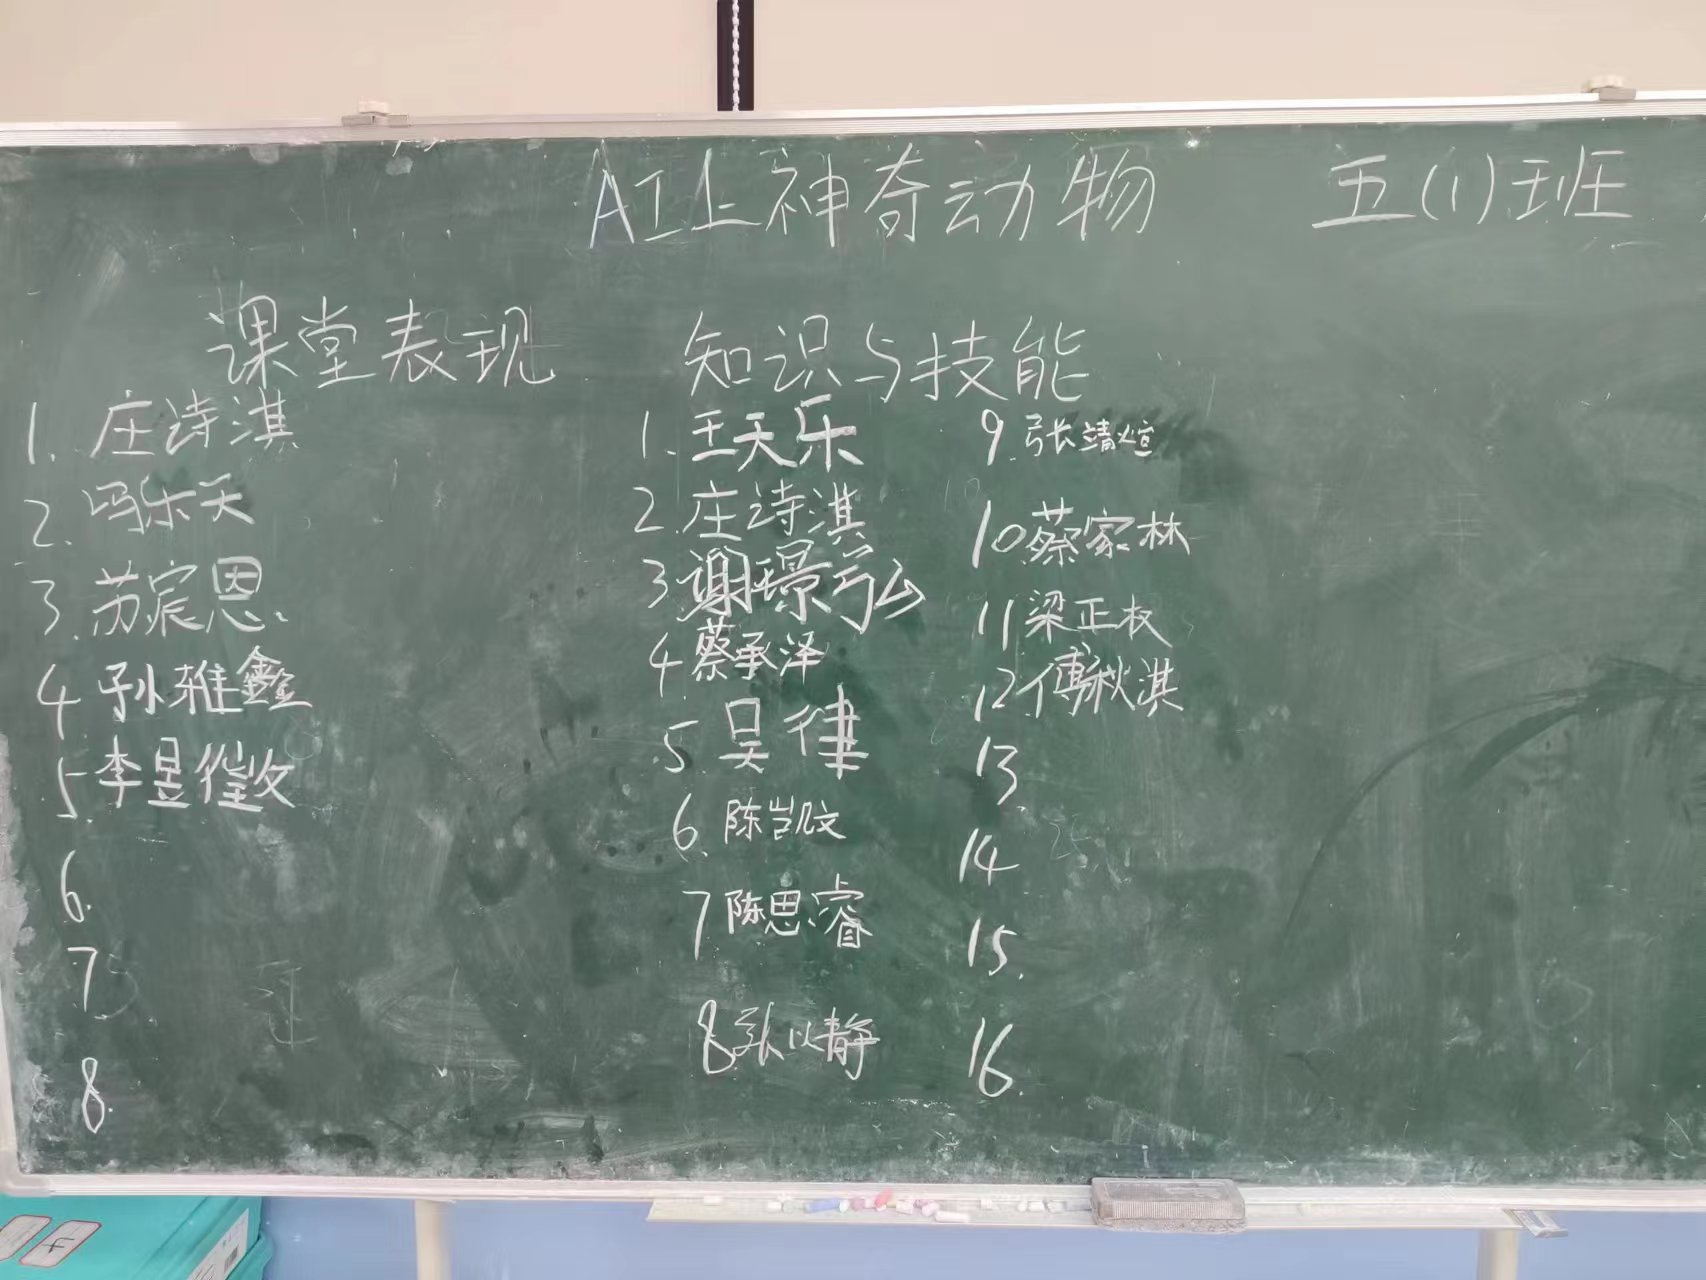 AI上神奇动物 五(1)班
课堂表现
1. 庄诗淇
2. 冯乐天
3. 苏宸恩
4 孙雅鑫
5. 李昱
6.
7
8.
知识与技能
1. 王天乐
2. 庄诗淇
3 谢璟弘
4 蔡承泽
5. 吴律
6. 陈凯文
7 陈思睿
8. 张以静
9. 张靖煊
10 蔡家林
11 梁正权
12 傅秋淇
13
14
15.
16